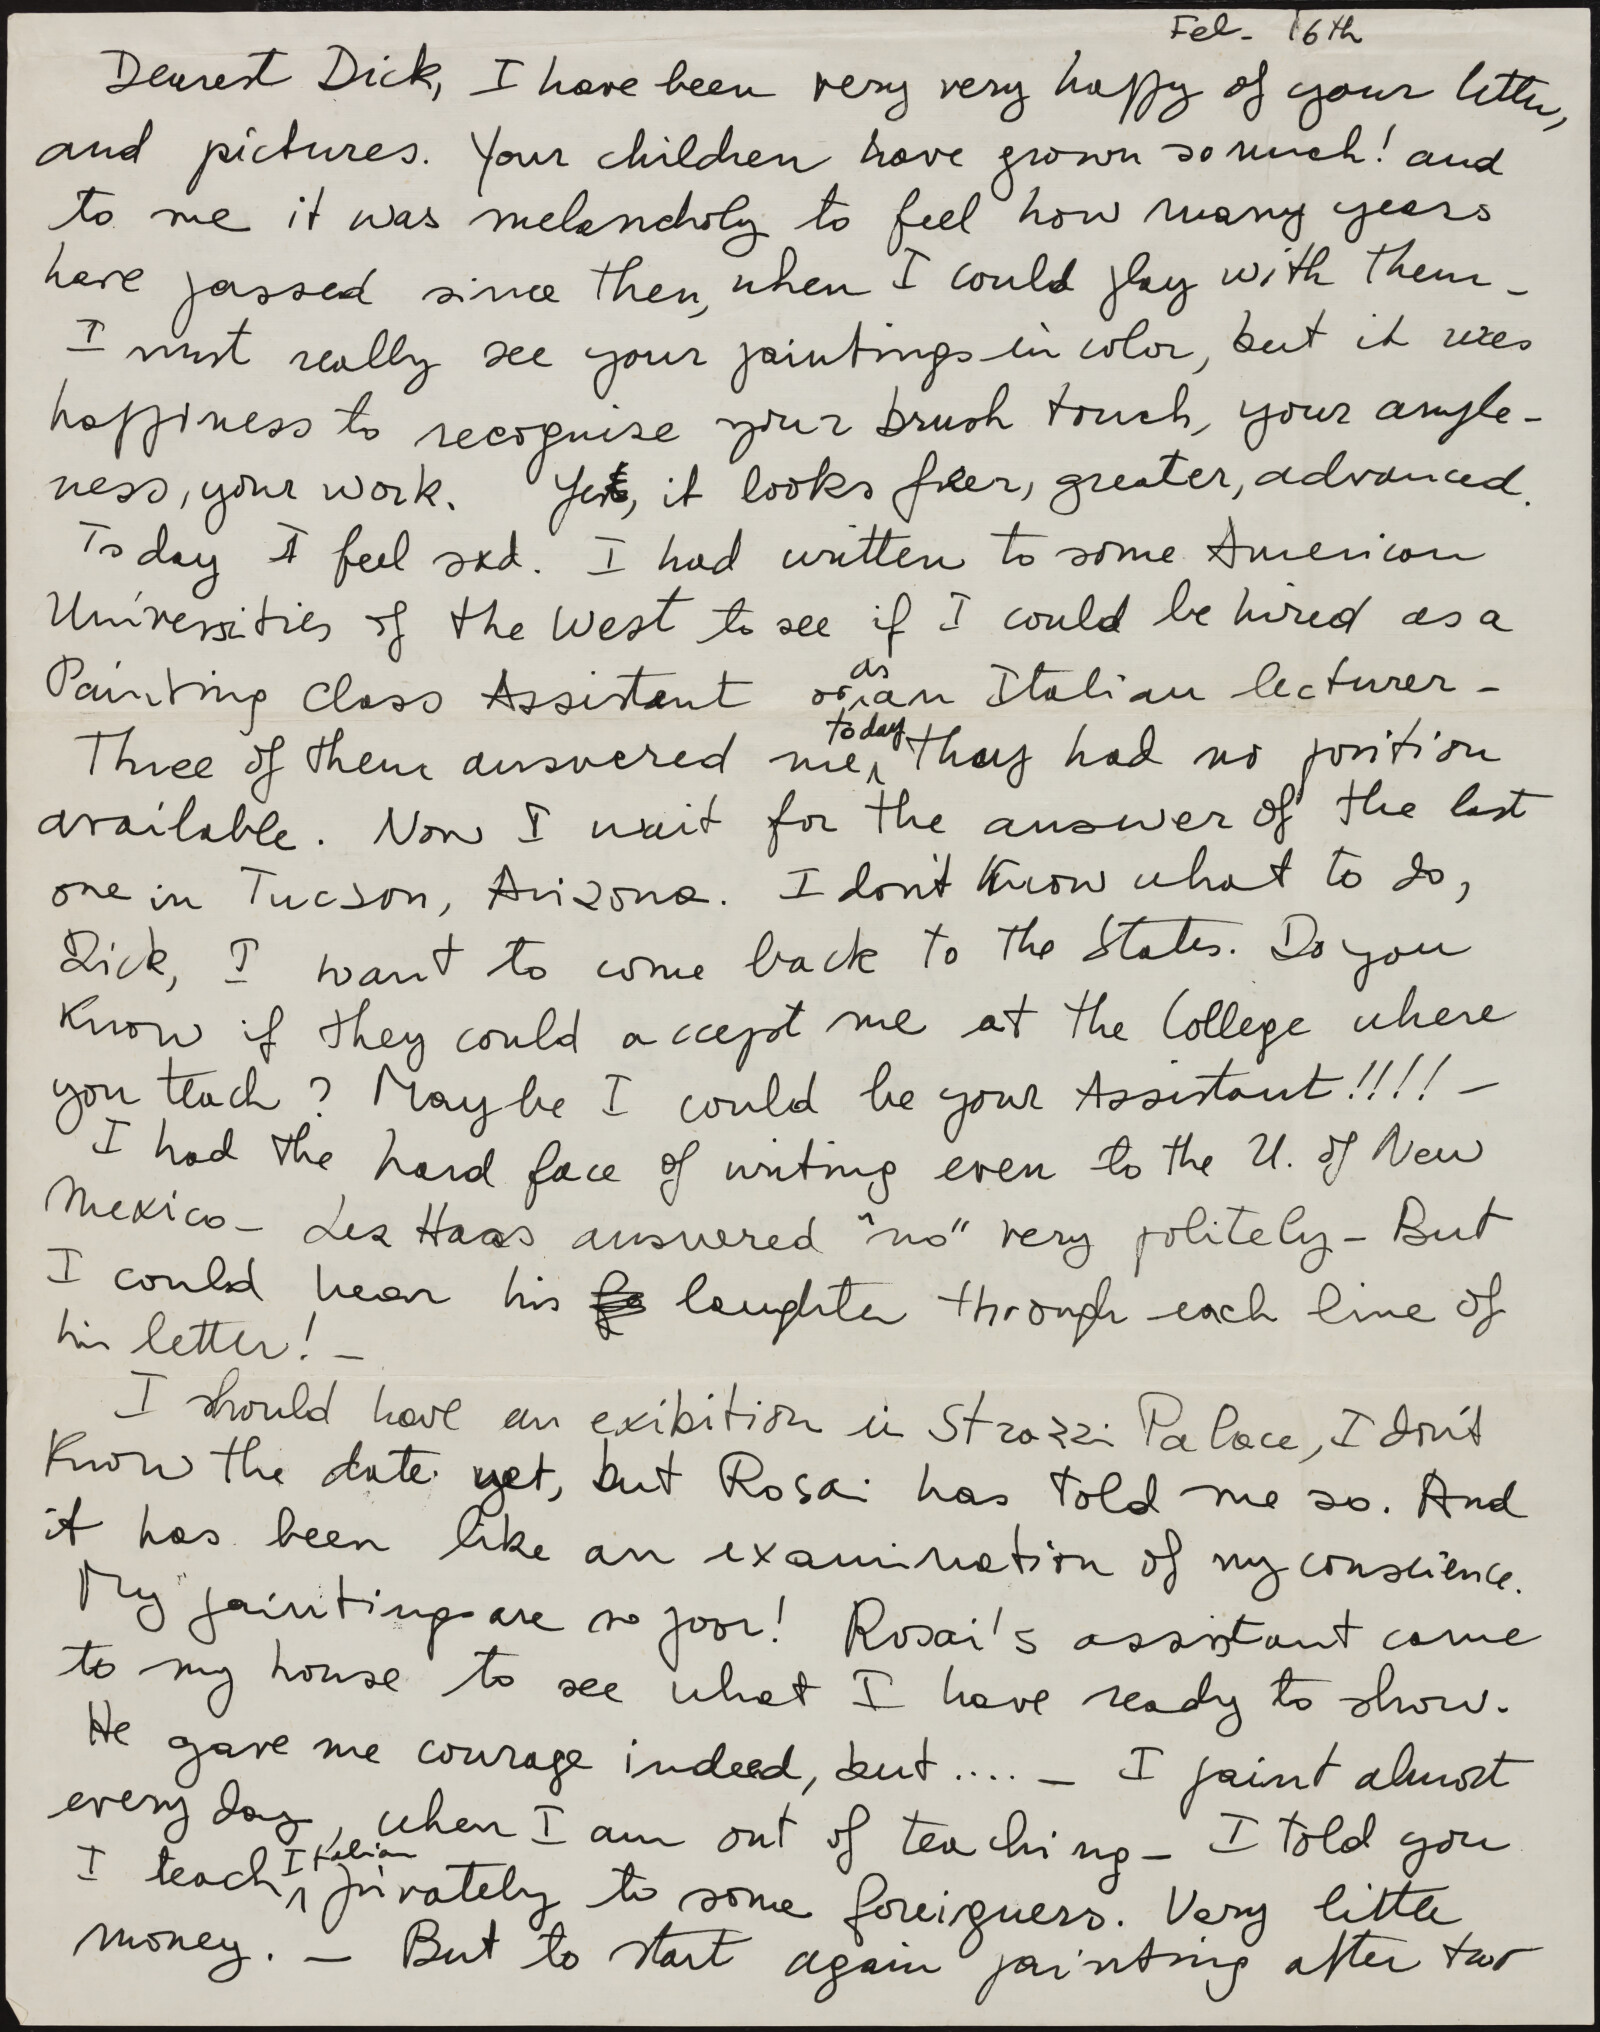 Feb. 16th
Dearest Dick, I have been very very happy of your letter,
and pictures. Your children have grown so much! and
to me it was melancholy to feel how many years
have passed since then, when I could play with them -
I must really see your paintings in color, but it was
happiness to recognise your brush touch, your
ness, your work. Yet, it looks freer, greater, advanced.
Today I feel sad. I had written to some American
Universities of the West to see if I could be hired as a
Painting Class Assistant or as an Italian lecturer -
Three of them answered me today, they had no position
available. Now I wait for the answer of the last
one in Tucson, Arizona. I don't know what to do,
Dick, I want to come back to the States. Do you
know if they could accept me at the College where
you teach? Maybe I could be your Assistant!!!! -
I had the hard face of writing even to the U. of New
Mexico - Lez Haas answered "no" very politely - But
I could hear his laughter through each line of
his letter! -
I should have an exibition in Strozzi Palace, I don't
know the date yet, but Rosai has told me so. And
it has been like an examination of my conscience.
My paintings are so poor! Rosai's assistant came
to my house to see what I have ready to show.
He gave me courage indeed, but .... - I paint almost
every day, when I am out of teaching - I told you
I teach Italian privately to some foreigners. Very little
money. - But to start again painting after two